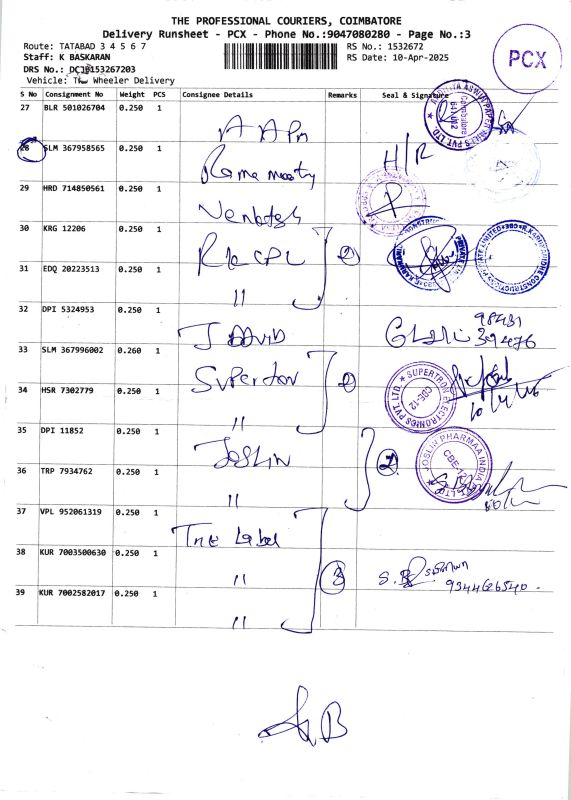 THE PROFESSIONAL COURIERS, COIMBATORE
Delivery Runsheet - PCX - Phone No.:9047080280 - Page No.:3
Route: TATABAD 3 4 5 6 7
RS No.: 1532672
Staff: K BASKARAN
RS Date: 10-Apr-2025
DRS No.: 153267203
Vehicle: Two Wheeler Delivery
PCX
S No Consignment No Weight PCS Consignee Details Remarks Seal & Signature
27 BLR 501026704 0.250 1
28 SLM 367958565 0.250 1
H/R
29 HRD 714850561 0.250 1
Venkatesh
30 KRG 12206 0.250 1
31 EDQ 20223513 0.250 1
"
32 DPI 5324953 0.250 1
J DAVID
33 SLM 367996002 0.260 1
34 HSR 7302779 0.250 1
"
SUPERTRON ELECTRONICS PVT LTD
CBE-12
35 DPI 11852 0.250 1
JOSLIN
2
JOSLIN PHARMAA INDIA
36 TRP 7934762 0.250 1
"
37 VPL 952061319 0.250 1
The Label
38 KUR 7003500630 0.250 1
" 3
9344626540
39 KUR 7002582017 0.250 1
"